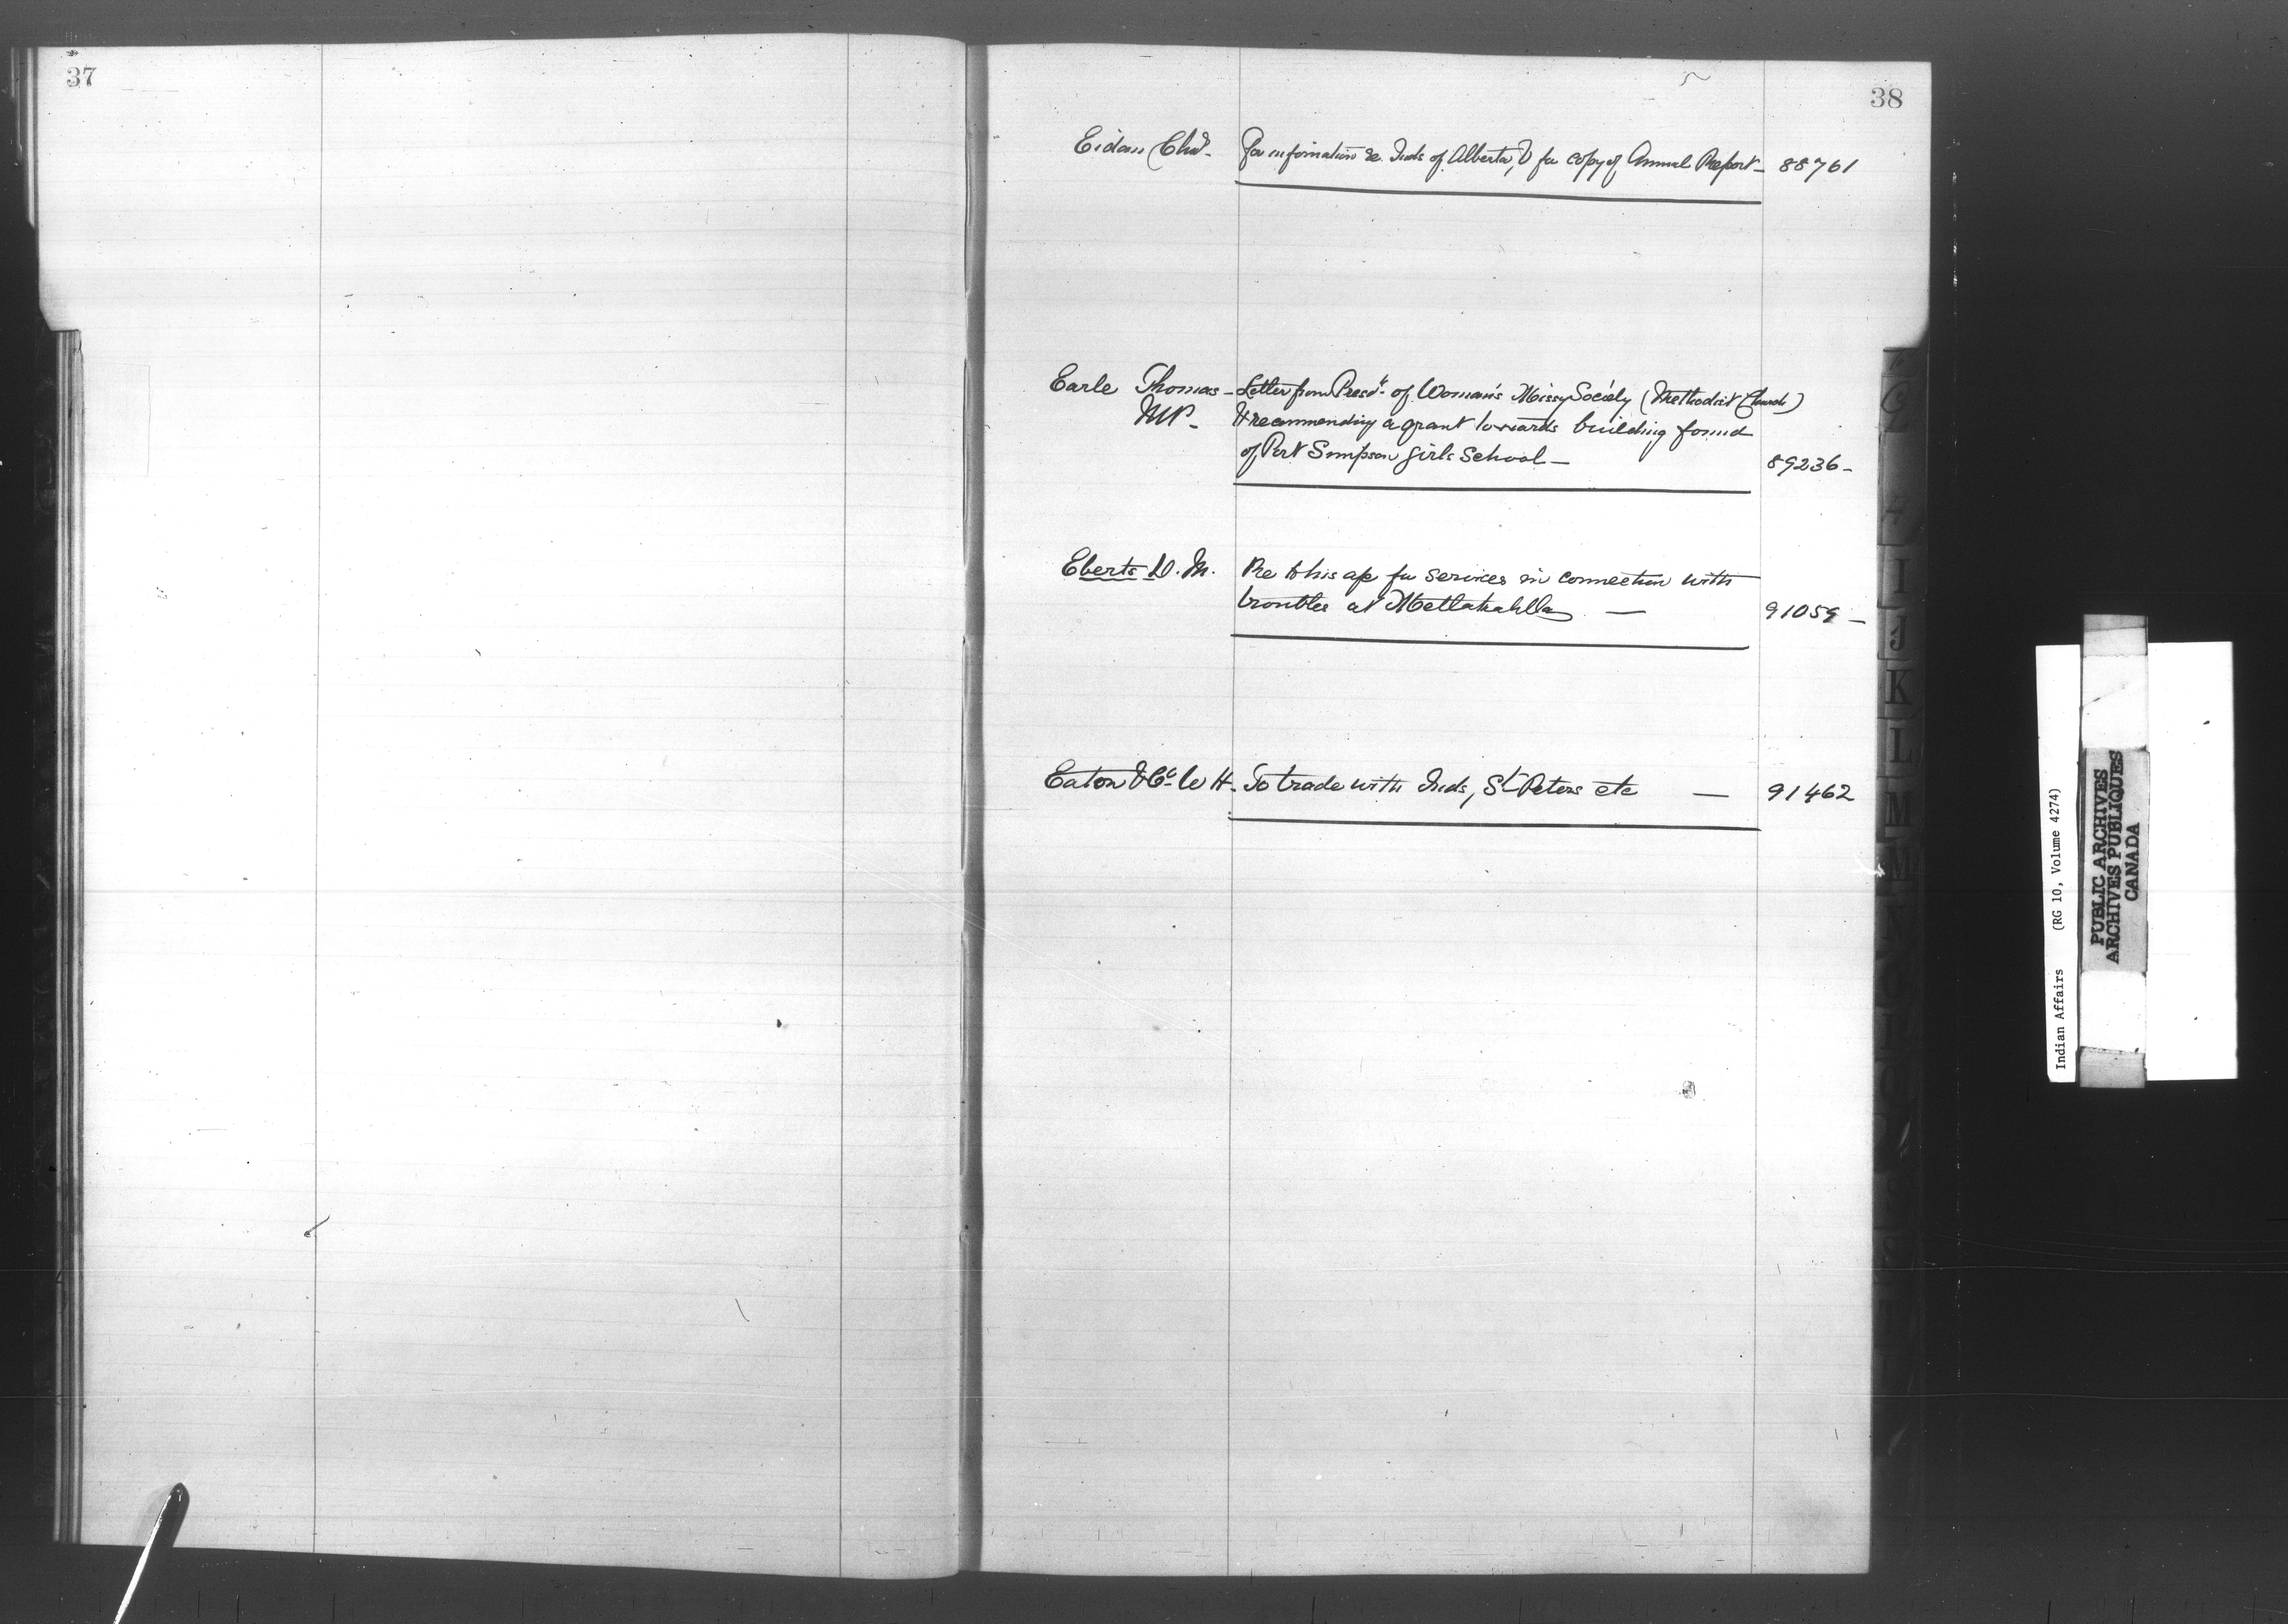 37
38
Eidan Chd. For information re. Inds of Alberta, & for copy of Annual Report - 88761
Earle Thomas - Letter from Presdt. of Woman's Missy Society (Methodist Church)
MP - & recommending a grant towards building found
of Port Simpson Girls School - 89236 -
Eberts D. M. Re to his a/c for services in connection with
troubles at Metlakahtla — 91059 -
Eaton & Co. W H. To trade with Inds, St Peters etc — 91462
G
I
J
K
L
M
Indian Affairs (RG 10, Volume 4274)
PUBLIC ARCHIVES
ARCHIVES PUBLIQUES
CANADA